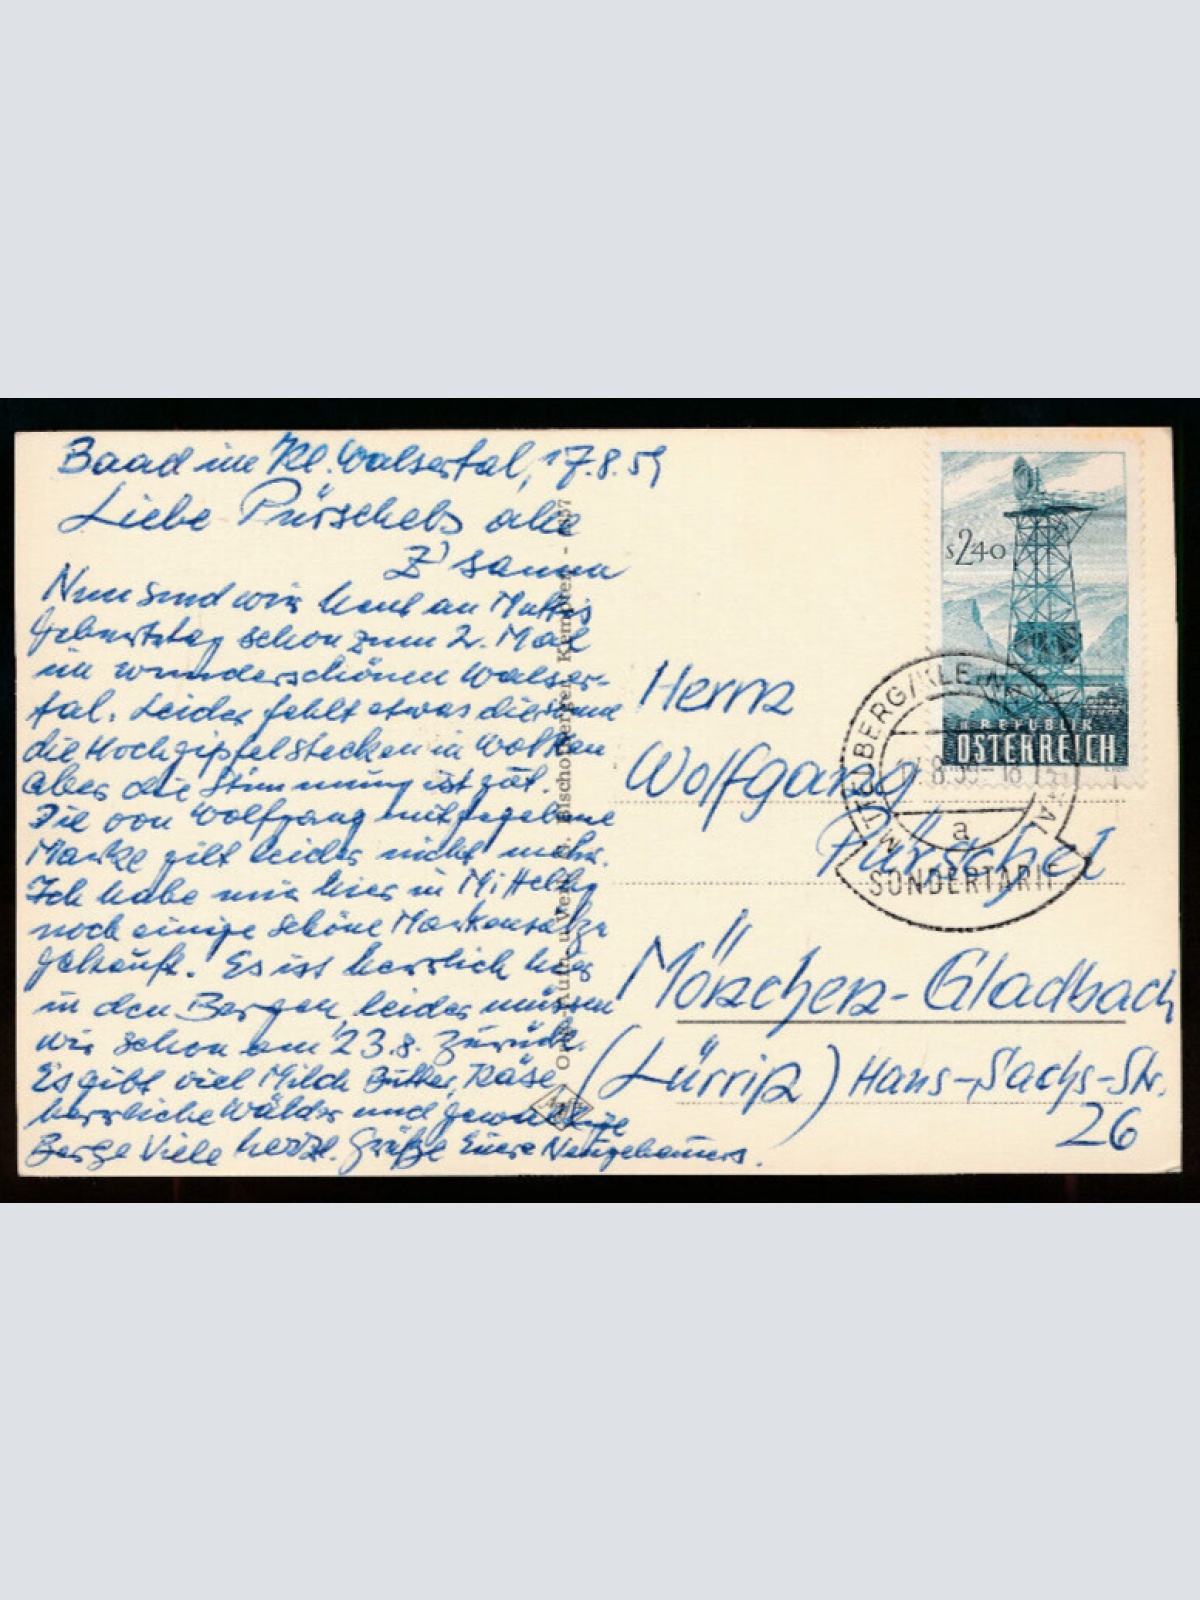 Baad im Kl. Walsertal, 17.8.59
Liebe Pürschels alle
z'samm
Nun sind wir heut an Muttis
Geburtstag schon zum 2. Mal
im wunderschönen Walser-
tal. Leider fehlt etwas die Sonne
die Hochgipfel stecken in Wolken
aber die Stimmung ist gut.
Die von Wolfgang mitgegebene
Marke gilt leider nicht mehr.
Ich habe mir hier in Mittelbg
noch einige schöne Markensätze
gekauft. Es ist herrlich hier
in den Bergen, leider müssen
wir schon am 23.8. zurück.
Es gibt viel Milch Butter, Käse
herrliche Wälder und gewaltige
Berge Viele herzl. Grüße Eure Neugebauers.
Bischofberger, Kempten
s 2.40
REPUBLIK
ÖSTERREICH
MITTELBERG/KLEINWALSERTAL
17.8.59-18
a
SONDERTARIF
Herrn
Wolfgang
Pürschel
Mönchen-Gladbach
(Lürrip) Hans-Sachs-Str.
26